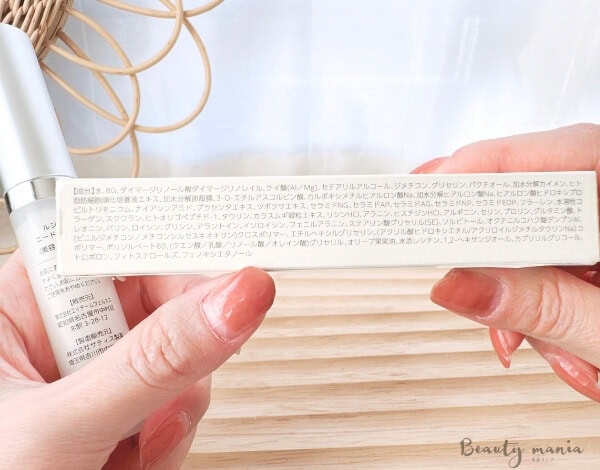 【成分】水、BG、ダイマージリノール酸ダイマージリノレイル、ケイ酸(Al／Mg)、セテアリルアルコール、ジメチコン、グリセリン、バクチオール、加水分解カイメン、ヒト
脂肪細胞順化培養液エキス、加水分解卵殻膜、3-O-エチルアスコルビン酸、カルボキシメチルヒアルロン酸Na、加水分解ヒアルロン酸Na、ヒアルロン酸ヒドロキシプロ
ピルトリモニウム、ナイアシンアミド、センチレンダエキス、ツボクサエキス、セラミドNG、セラミドAP、セラミドAG、セラミドNP、セラミドEOP、フラーレン、水溶性コ
ラーゲンクスクワラン、ヒトオリゴペプチド-1、タウリン、カラスムギ穀粒エキス、リシンHCl、アラニン、ヒスチジンHCl、アルギニン、セリン、プロリン、グルタミン酸、ト
レオニン、バリン、ロイシン、グリシン、アラントイン、イソロイシン、フェニルアラニン、ステアリン酸グリセリル(SE)、ソルビトール、オクテニルコハク酸デンプンAl、
(ビニルジメチコン／メチコンシルセスキオキサン)クロスポリマー、エチルヘキシルグリセリン、(アクリル酸ヒドロキシエチル／アクリロイルジメチルタウリンNa)コ
ポリマー、ポリソルベート60、(クエン酸／乳酸／リノール酸／オレイン酸)グリセリル、オリーブ果実油、水添レシチン、1,2-ヘキサンジオール、カプリリルグリコール、
トロポロン、フィトステロールズ、フェノキシエタノール
ルシ
ニード
(美容
ご使用をおやめください。
【販売元】
株式会社エイチームウェルネ
愛知県名古屋市中村区
名駅 3-28-12
【製造販売元】
株式会社サティス製薬
埼玉県吉川市
Beauty mania